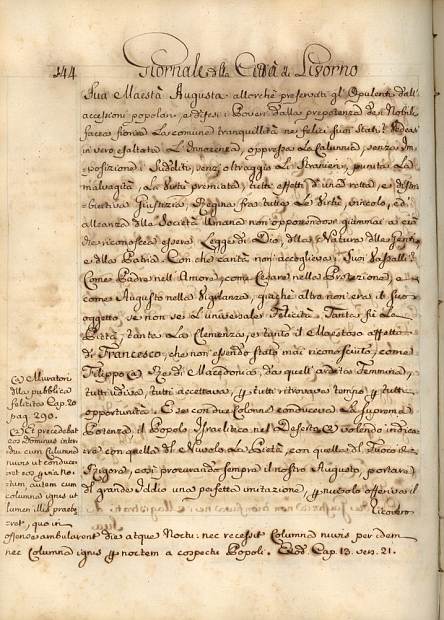 244 Giornale della Città di Livorno
Sua Maestà Augusta allorchè preservati gl' Opulenti dall'
accessioni popolari, e difesi i Poveri dalla prepotenza de' Nobili
facea fiorire La comune tranquillità ne' felici suoi Stati. Vedeasi
in vero esaltata L'Innocenza, oppressa La Calunnia, senza Im-
posizione i Sudditi, senz' oltraggio Li Stranieri, punita La
malvagità, La Virtù premiata, tutti effetti d'una retta, e distri-
butiva Giustizia, Regina fra tutte Le Virtù, vincolo, ed
alleanza della Società Umana non opponendosi giammai a ciò
che riconosceva essere Legge di Dio, della Natura delle Genti,
e della Patria. Con che carità non accoglieva i Suoi Vassalli
Come Padre nell' Amore, come Cesare nella Protezione, e
come Augusto nella Vigilanza, giachè altro non era il suo
oggetto se non se L'universale Felicità. Tanta fù La
Pietà, tanta La Clemenza, e tanto il Maestoso affetto
di Francesco, che non essendo stato mai riconosciuto, come
Filippo (a) Re di Macedonia, da quell' ardita Femmina,
tutti udiva, tutti accettava, e tutti ritrovava tempo, e tutte
opportunità. E se con due Colonne conduceva La Suprema
Potenza il Popolo Israelitico nel Deserto (b) volendo indica-
re con quella di Nuvolo La Pietà, con quella di Fuoco il
Rigore, così procurando sempre il nostro Augusto, portare
del grande Iddio una perfetta imitazione, nuvolo offeriva il
Ritovero
(a) Muratori
della pubblica
felicità Cap. 20
pag. 290.
(b) Et precedebat
eos Dominus inten-
du cum Columna
nuvis ut conducer-
ret eos
tum autem cum
columna ignis ut
lumen illis praebe-
ret, quo in
ambularent die atque Noctu: nec recessit Columna nuvis per idem
nec Columna ignis noctem a cospectu Popoli. Exod. Cap. 13. vers. 21.